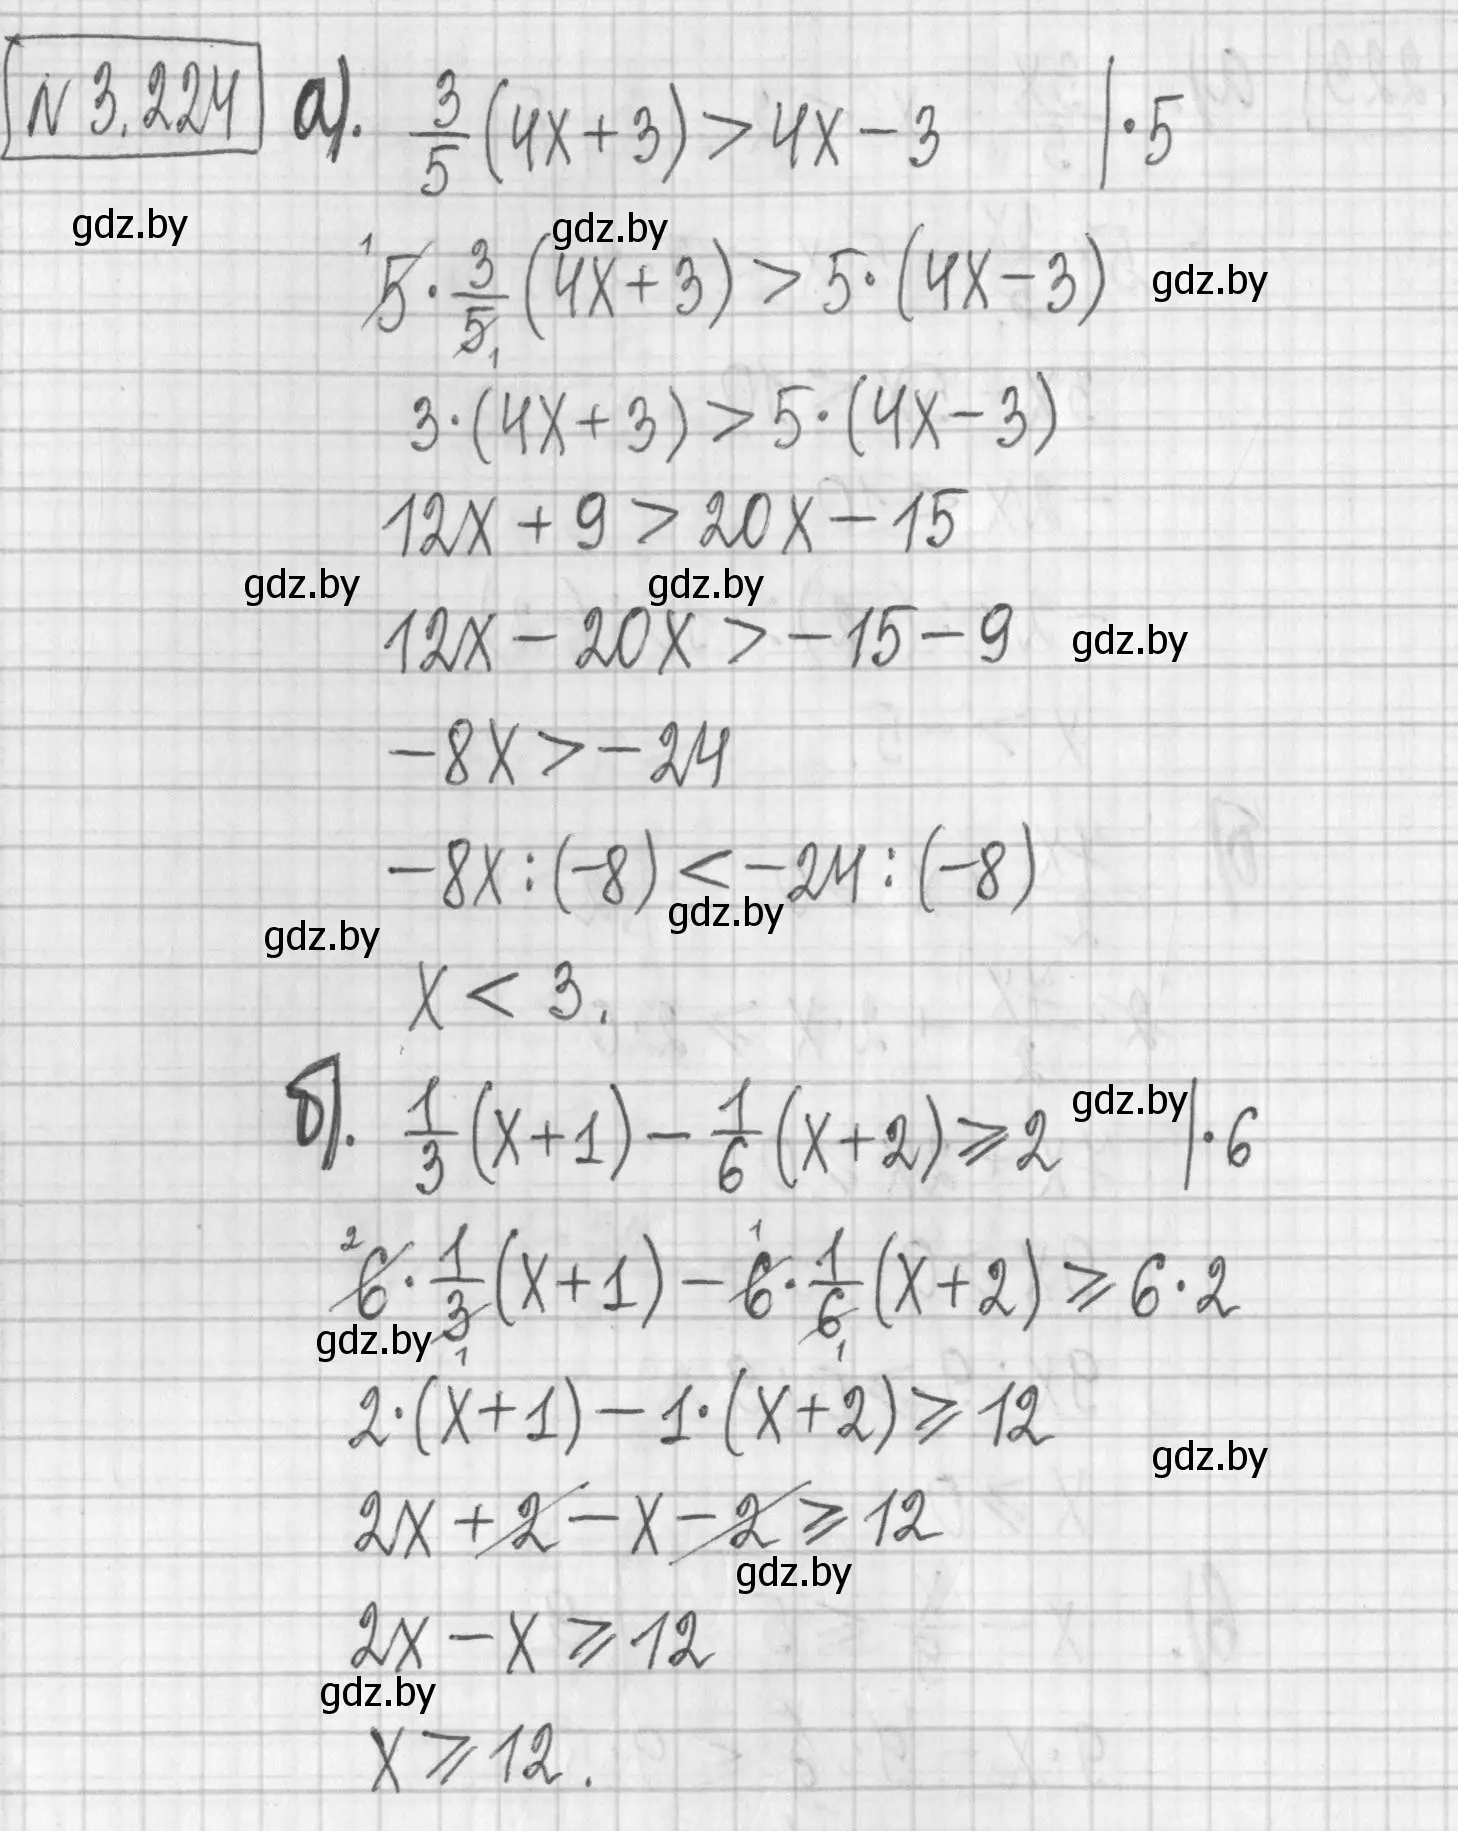 N 3.224 а). 3/5 (4x + 3) > 4x − 3 | · 5
gdz.by gdz.by
1 5 · 3/5 1 (4x + 3) > 5 · (4x − 3) gdz.by
3 · (4x + 3) > 5 · (4x − 3)
12x + 9 > 20x − 15
gdz.by gdz.by
12x − 20x > −15 − 9 gdz.by
−8x > −24
−8x : (−8) < −24 : (−8)
gdz.by gdz.by
x < 3.
б). 1/3 (x + 1) − 1/6 (x + 2) ⩾ 2 gdz.by | · 6
2 6 · 1/3 1 (x + 1) − 1 6 · 1/6 1 (x + 2) ⩾ 6 · 2
gdz.by
2 · (x + 1) − 1 · (x + 2) ⩾ 12
gdz.by
2x + 2 − x − 2 ⩾ 12
gdz.by
2x − x ⩾ 12
gdz.by
x ⩾ 12.